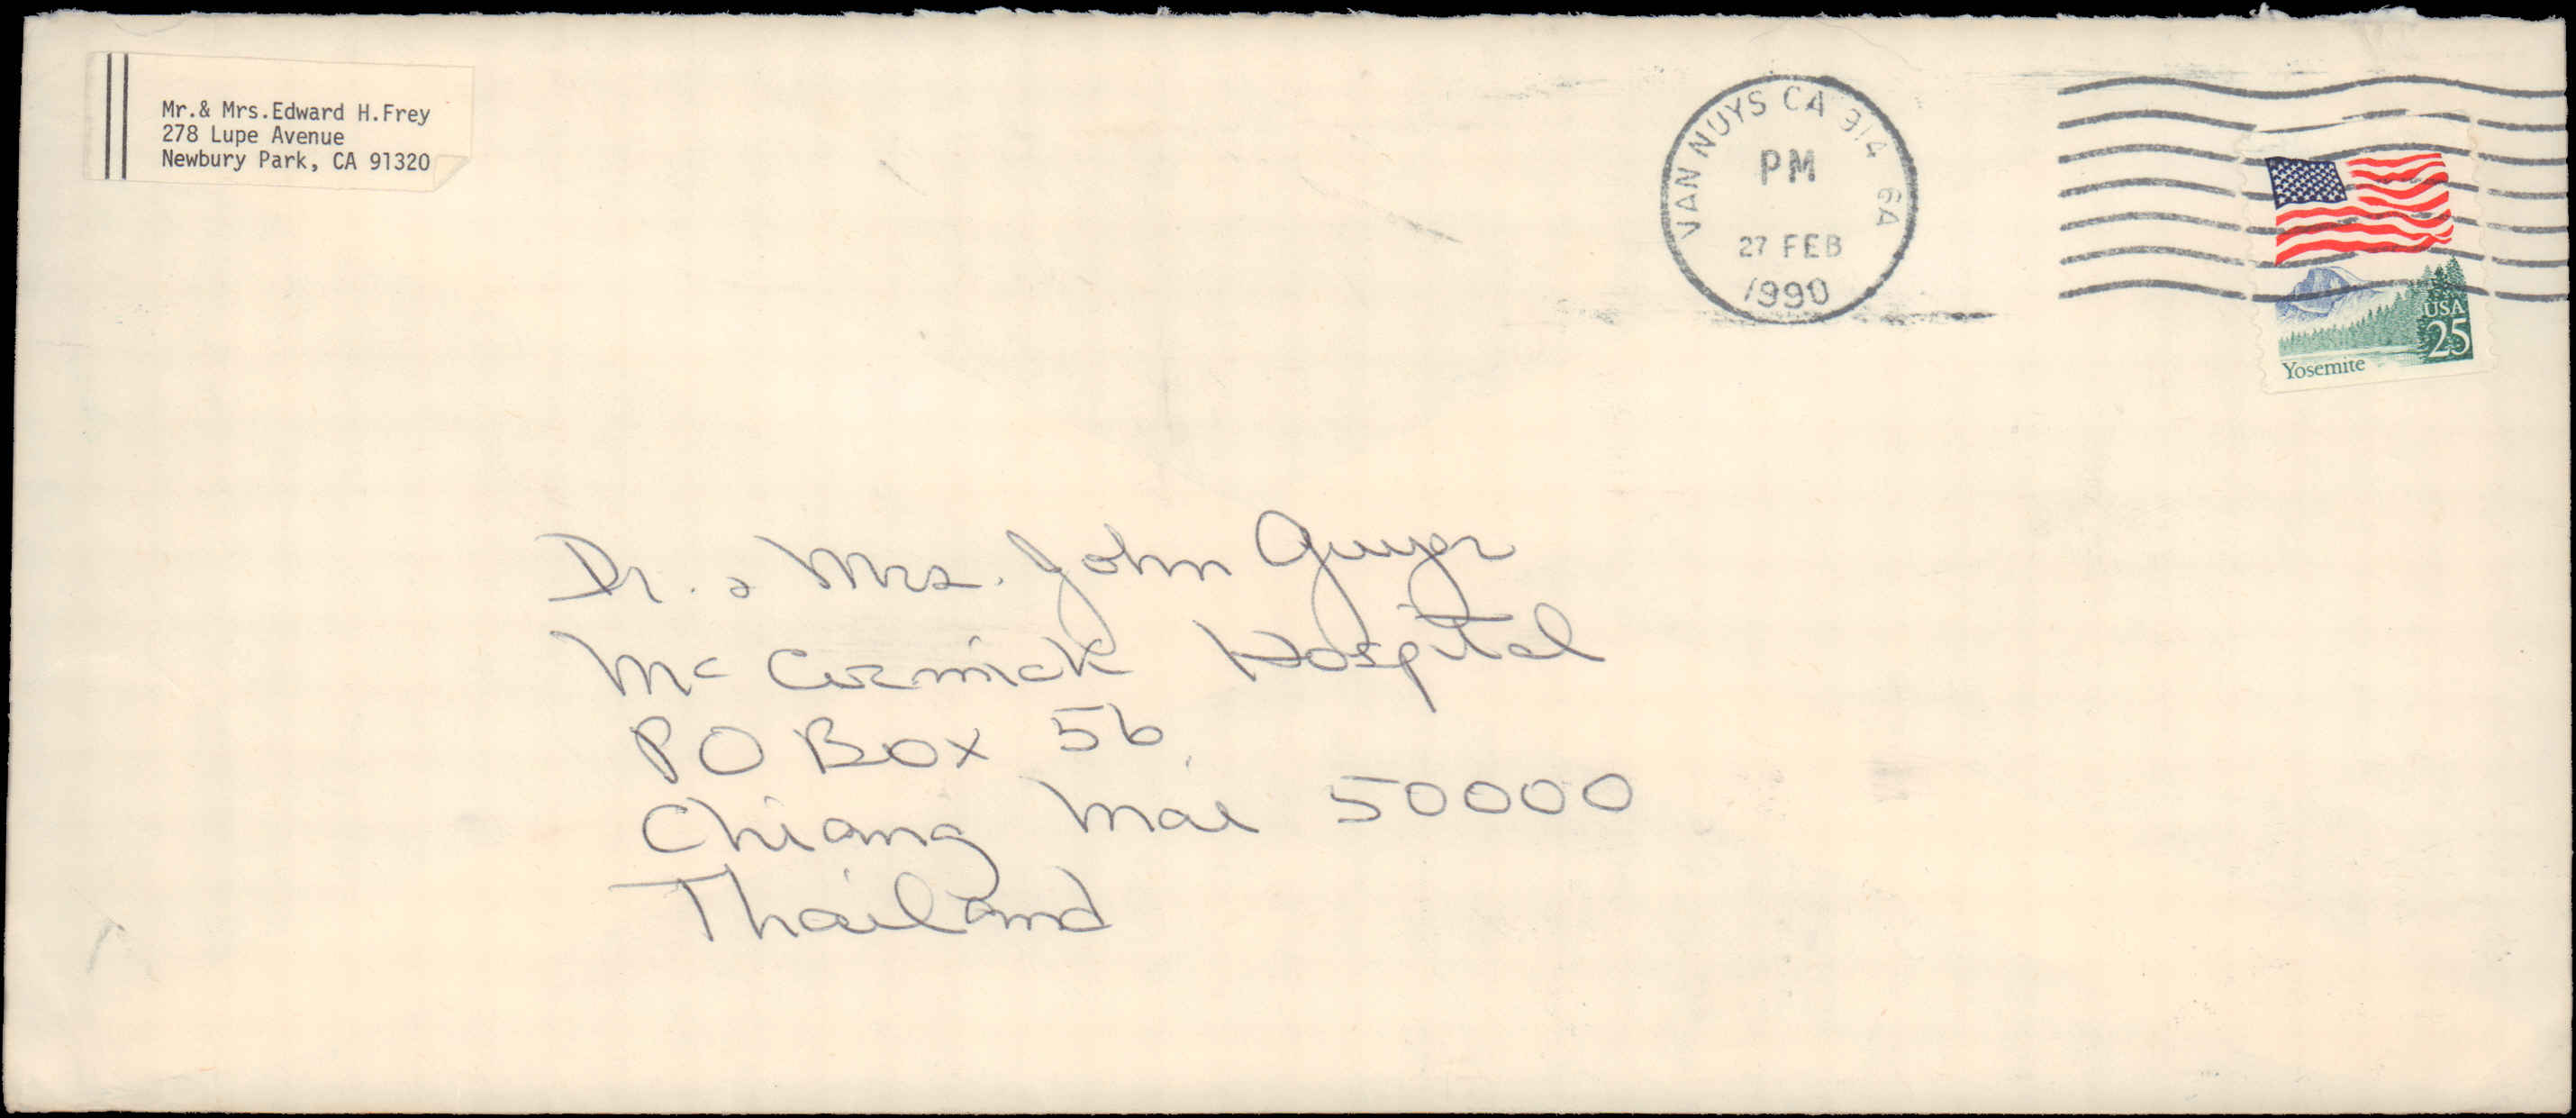 Mr.& Mrs.Edward H.Frey
278 Lupe Avenue
Newbury Park, CA 91320
VAN NUYS CA 914 6A
PM
27 FEB
1990
USA
25
Yosemite
Dr. & Mrs. John Guyer
McCormick Hospital
PO Box 56
Chiang Mai 50000
Thailand